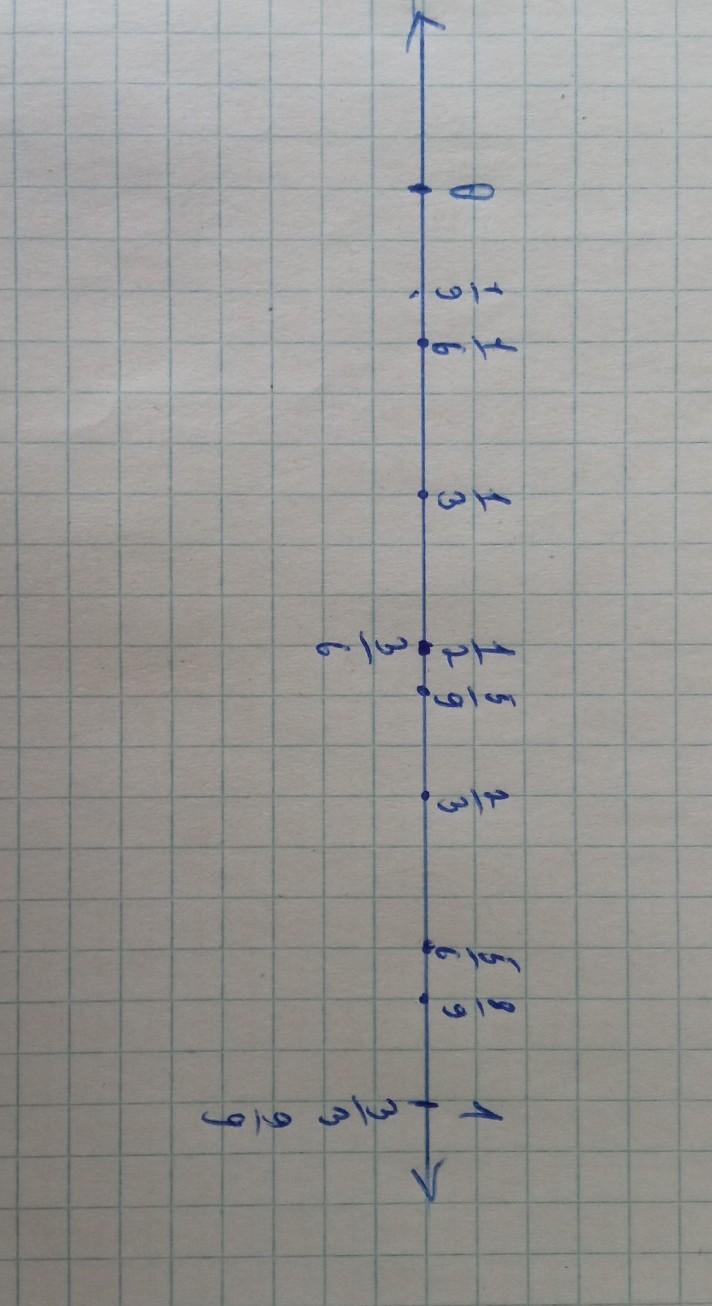 0 1/9 1/6 1/3 1/2 5/9 2/3 5/6 8/9 1
3/6 3/3 9/9